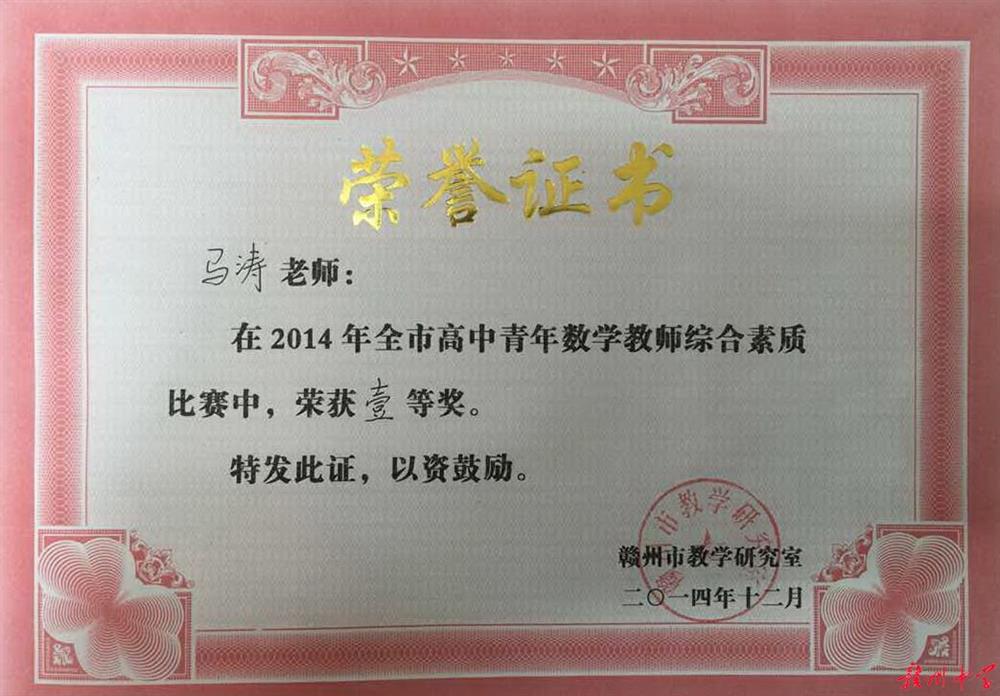 荣誉证书
马涛老师：
在2014年全市高中青年数学教师综合素质
比赛中，荣获壹等奖。
特发此证，以资鼓励。
赣州市教学研究室
二〇一四年十二月
赣州中学